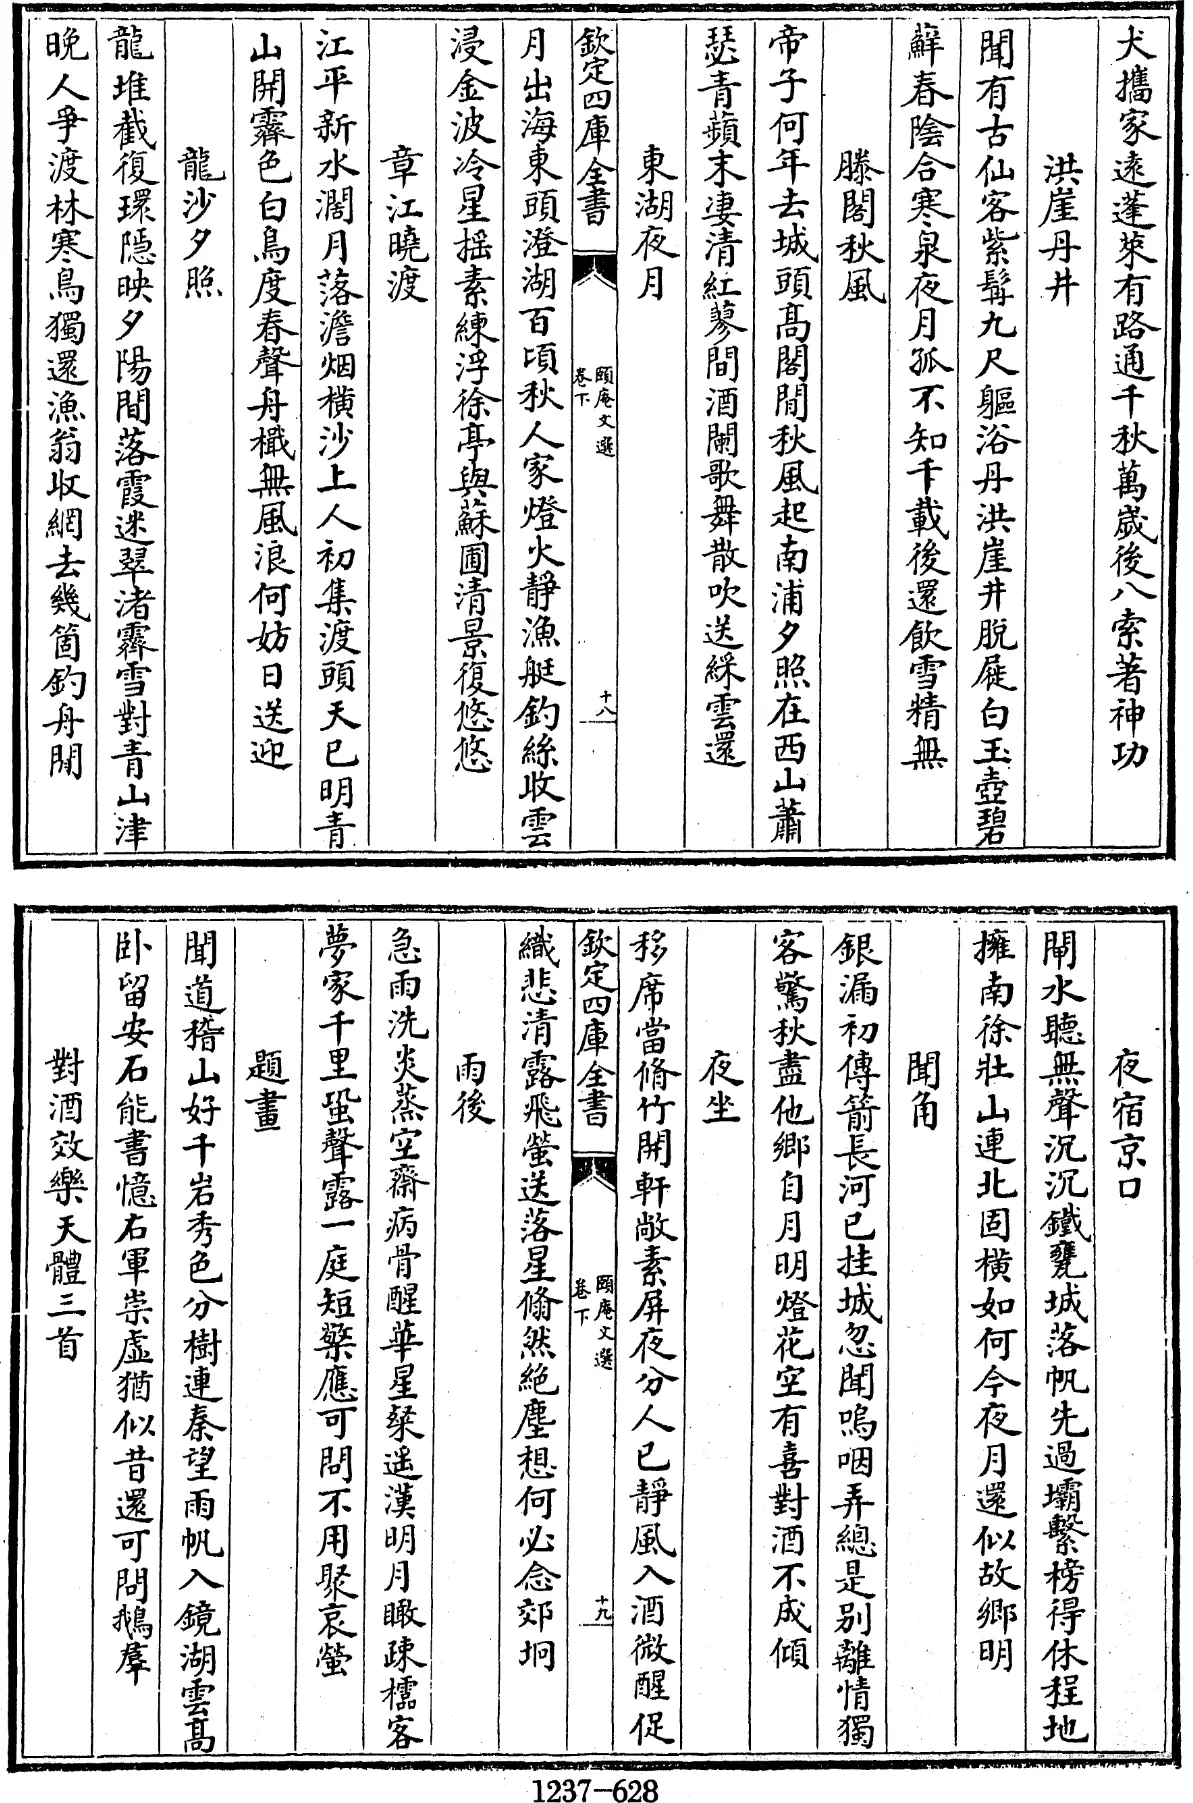 犬攜家遠蓬萊有路通千秋萬歲後八索著神功
洪崖丹井
聞有古仙客紫髯九尺軀浴丹洪崖井脫屣白玉壺碧
蘚春陰合寒泉夜月孤不知千載後還飲雪精無
滕閣秋風
帝子何年去城頭髙閣閒秋風起南浦夕照在西山蕭
瑟青蘋末凄清紅蓼間酒闌歌舞散吹送綵雲還
東湖夜月
欽定四庫全書
頤庵文選
卷下
十八
月出海東頭澄湖百頃秋人家燈火靜漁艇釣絲收雲
浸金波冷星揺素練浮徐亭與蘇圃清景復悠悠
章江曉渡
江平新水濶月落澹烟橫沙上人初集渡頭天已明青
山開霽色白鳥度春聲舟檝無風浪何妨日送迎
龍沙夕照
龍堆截復環隱映夕陽間落霞迷翠渚霽雪對青山津
晚人爭渡林寒鳥獨還漁翁收網去幾箇釣舟閒
夜宿京口
閘水聽無聲沉沉鐵甕城落帆先過壩繫榜得休程地
擁南徐壯山連北固橫如何今夜月還似故鄉明
聞角
銀漏初傳箭長河已挂城忽聞嗚咽弄總是别離情獨
客驚秋盡他鄉自月明燈花空有喜對酒不成傾
夜坐
移席當脩竹開軒敞素屏夜分人已靜風入酒微醒促
欽定四庫全書
頤庵文選
卷下
十九
織悲清露飛螢送落星翛然絶塵想何必念郊坰
雨後
急雨洗炎蒸空齋病骨醒華星粲遥漢明月瞰疎櫺客
夢家千里蛩聲露一庭短檠應可問不用聚哀螢
題畫
聞道稽山好千岩秀色分樹連秦望雨帆入鏡湖雲髙
卧留安石能書憶右軍崇虛猶似昔還可問鵝羣
對酒效樂天體三首
1237-628